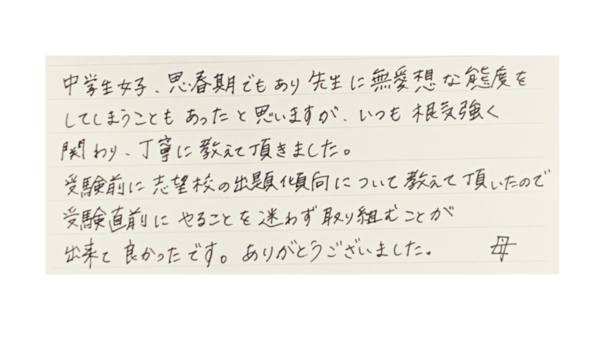 中学生女子、思春期でもあり先生に無愛想な態度を
してしまうこともあったと思いますが、いつも根気強く
関わり、丁寧に教えて頂きました。
受験前に志望校の出題傾向について教えて頂いたので
受験直前にやることを迷わず取り組むことが
出来て良かったです。ありがとうございました。 母